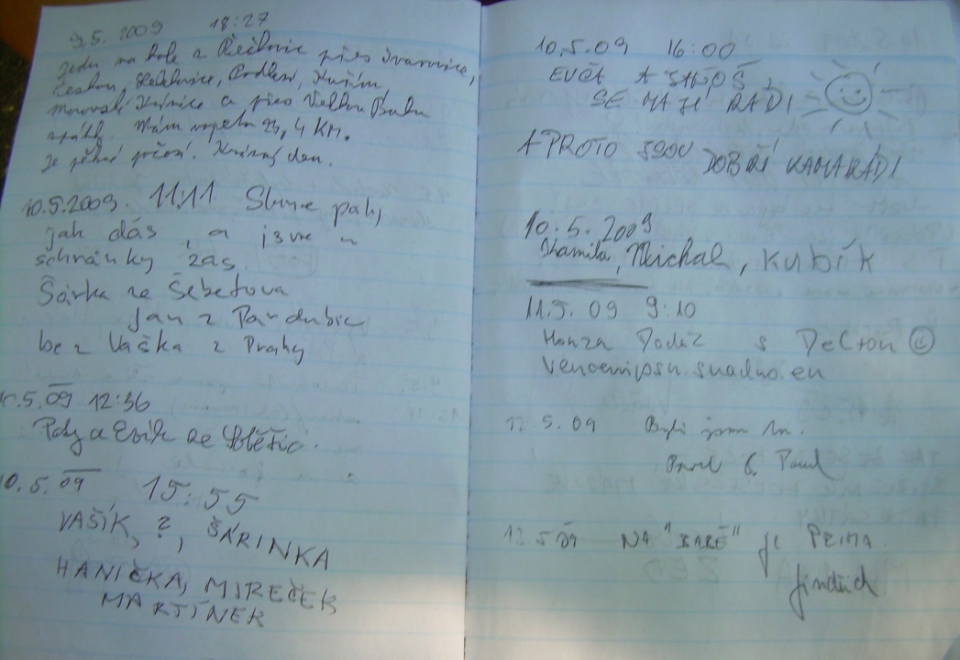 9.5. 2009 18:27
Jedu na kole z Řečkovic přes Ivanovice,
Českou, Lelekovice, Podlesí, Kuřim,
Moravské Knínice a přes Velkou Babu
zpátky. Mám najeto 23,4 KM.
Je pěkné počasí. Krásný den.
10.5.2009. 11:11 Slunce pálí,
jak dás, a jsme u
schránky zas.
Šárka ze Šebetova
Jan z Pardubic
bez Vaška z Prahy
10.5.09 12:36
Paty a Evik ze
10.5.09 15:55
VAŠÍK, ?, ŠÁRINKA
HANIČKA, MIREČEK
MARTÍNEK
10.5.09 16:00
EVČA A STANOŠ
SE MAJÍ RÁDI
A PROTO JSOU DOBŘÍ KAMARÁDI
10.5.2009
Kamila, Michal, KUBÍK
11.5.09 9:10
Honza s
12.5.09 Byli jsme tu.
Pavel & Paul
13.5.09 NA "BABĚ" je PRIMA
Jindřich